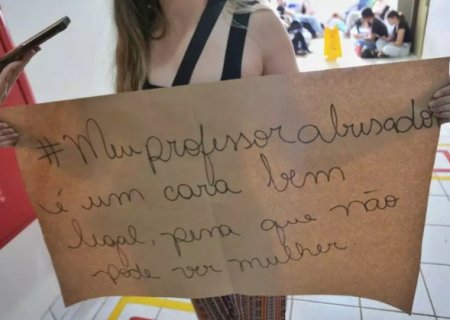 #Meu professor abusador
é um cara bem
legal, pena que não
pode ver mulher.